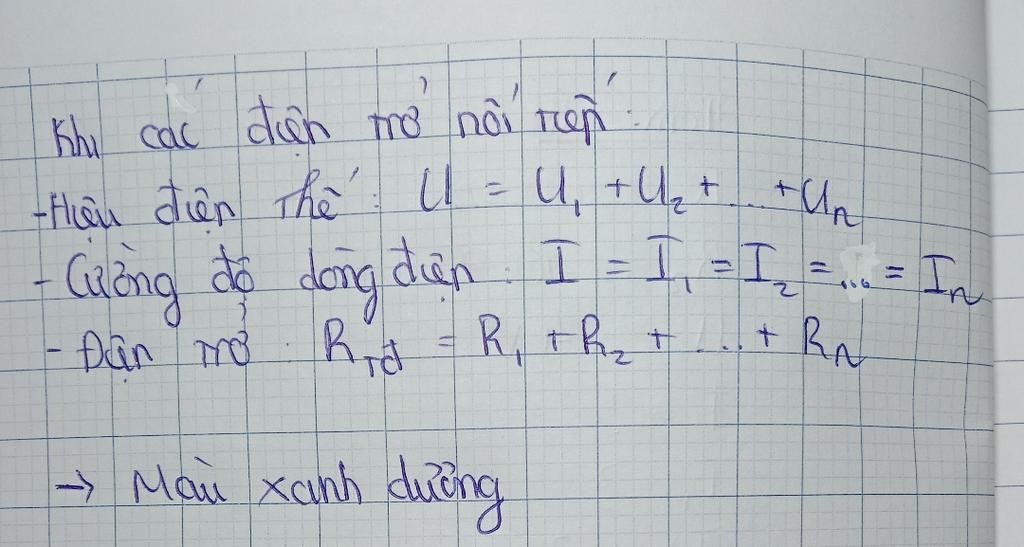 Khi các điện trở nối tiếp :
- Hiệu điện thế : U = U₁ + U₂ + ... + Uₙ
- Cường độ dòng điện : I = I₁ = I₂ = ... = Iₙ
- Điện trở : R_tđ = R₁ + R₂ + ... + Rₙ
→ Màu xanh dương